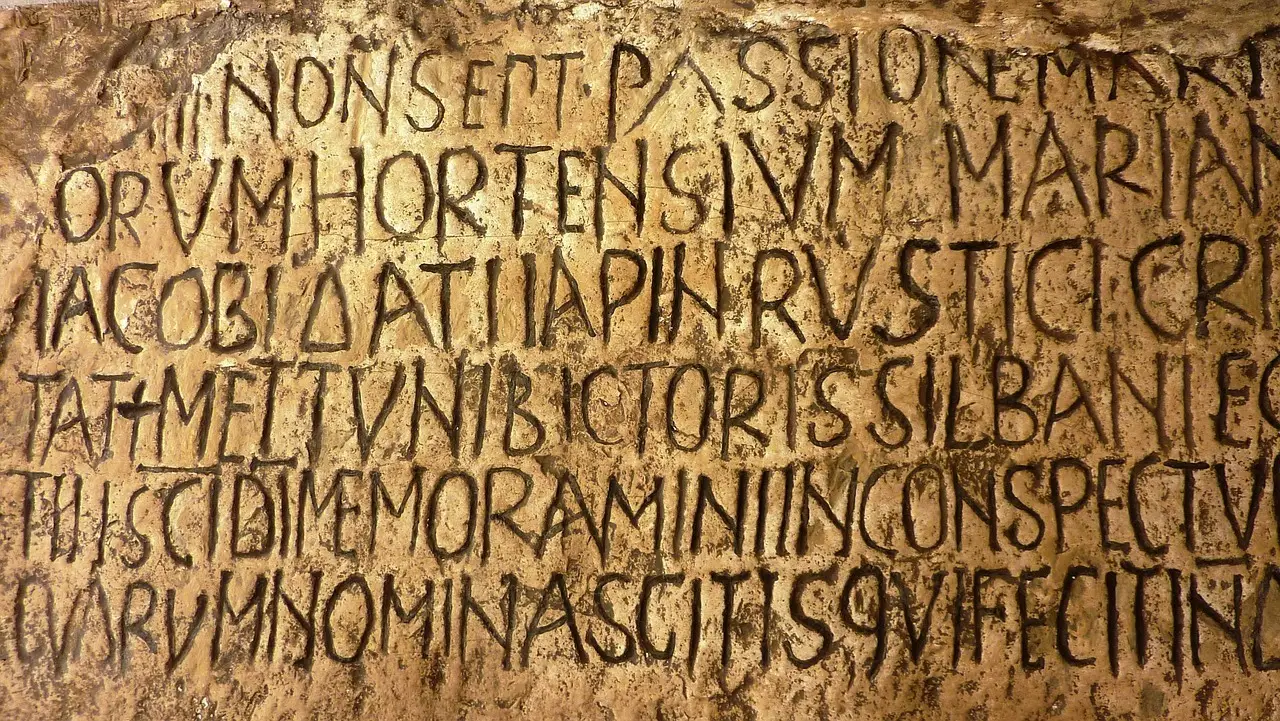 IIII NON SEPT PASSIONE MARTI
ORVM HORTENSIVM MARIAN
IACOBI DATI IAPIN RVSTICI CRI
TATI METTVNI BICTORIS SILBANI EG
TII IS SCI DI MEMORAMINI IN CONSPECTV
QVARVM NOMINA SCITIS QVI FECIT IND